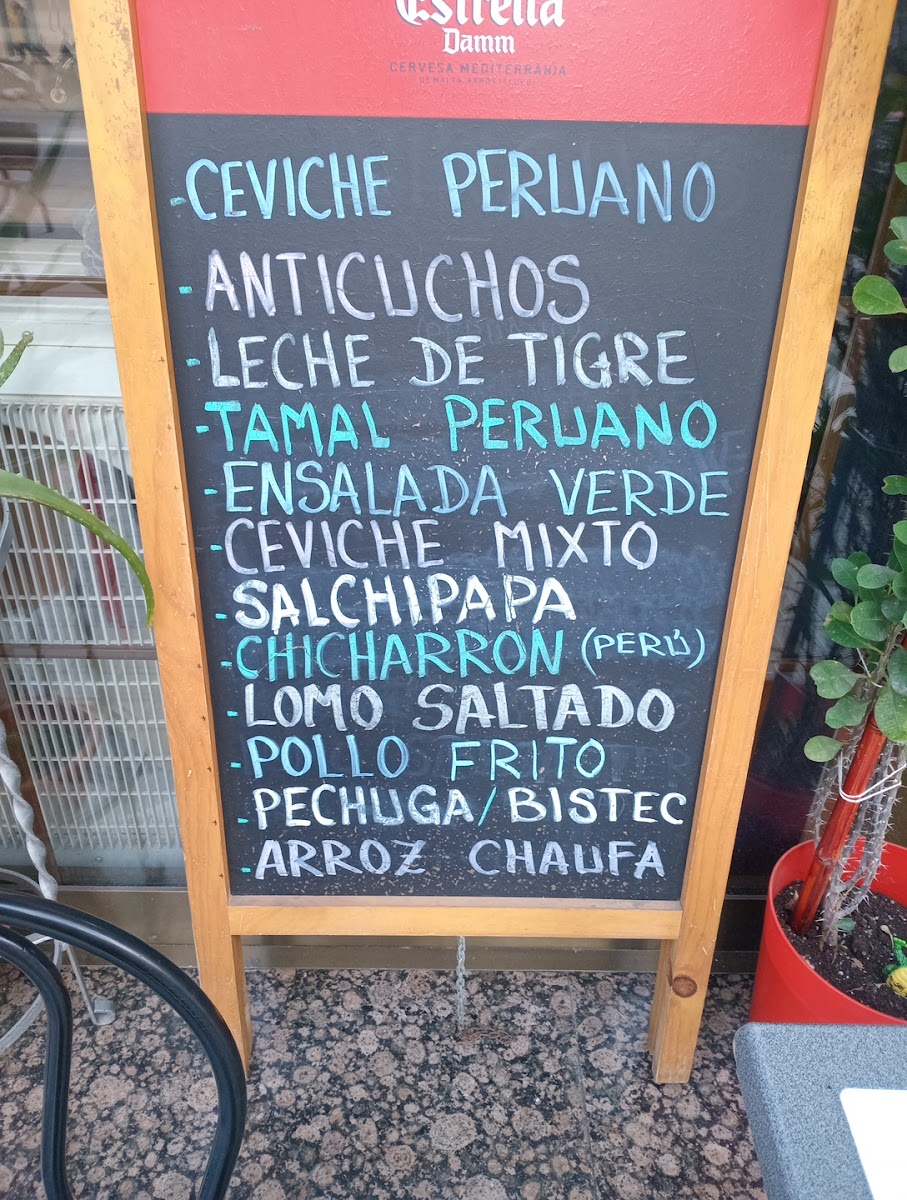 Estrella
Damm
CERVESA MEDITERRÀNIA
- CEVICHE PERUANO
- ANTICUCHOS
- LECHE DE TIGRE
- TAMAL PERUANO
- ENSALADA VERDE
- CEVICHE MIXTO
- SALCHIPAPA
- CHICHARRON (PERÚ)
- LOMO SALTADO
- POLLO FRITO
- PECHUGA/BISTEC
- ARROZ CHAUFA